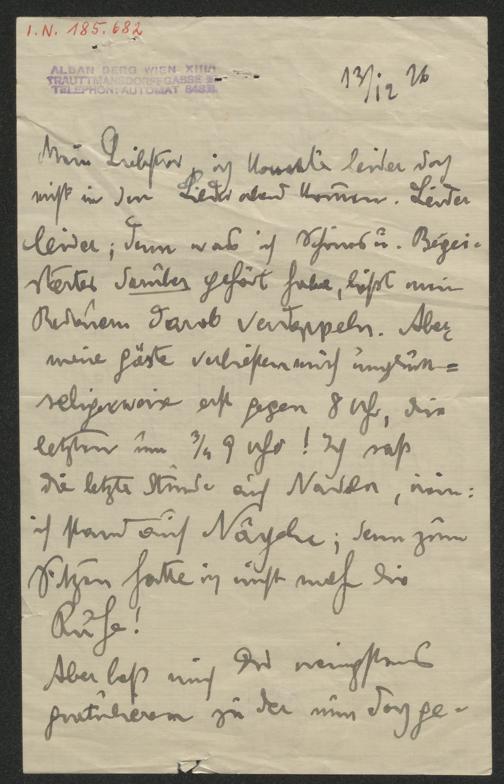 I.N. 185.682
ALBAN BERG WIEN XIII/1
TRAUTTMANSDORFFGASSE 27
TELEPHON: AUTOMAT 84831
13/12 26
Mein Liebster, ich konnte leider doch
nicht in den Liederabend kommen. Leider
leider; denn was ich Schönes u. Begei-
stertes darüber gehört habe, läßt mein
Bedauern darob verdoppeln. Aber
meine Gäste verließen mich unglück=
seligerweise erst gegen 8 Uhr, die
letzten um 3/4 9 Uhr! Ich saß
die letzte Stunde auf Nadeln, nein:
ich stand auf Nägeln; denn zum
Sitzen hatte ich nicht mehr die
Ruhe!
Aber laß mich Dir wenigstens
gratulieren zu der nun doch ge-